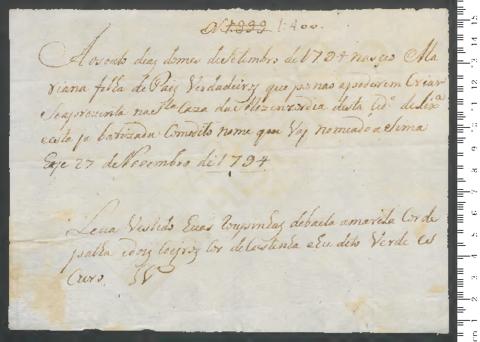 N 1399 1:400.
Aos outo dias do mes de Setembro de 1794 nasceo Ma
riana filha de Pais Verdadeiros que por nao apoderem Criar
Se aprezenta na Sta Caza da Mezericordia desta Cide de Lixa
e esta ja bautizada Com o dito nome que Vaj nomiado a Sima
Oje 27 de Novembro de 1794
Leva Vestido duas Roupinhas de baeta amarela Cor de
palha e dois Coeiros Cor de Castanha e hu dito Verde es
Curo.